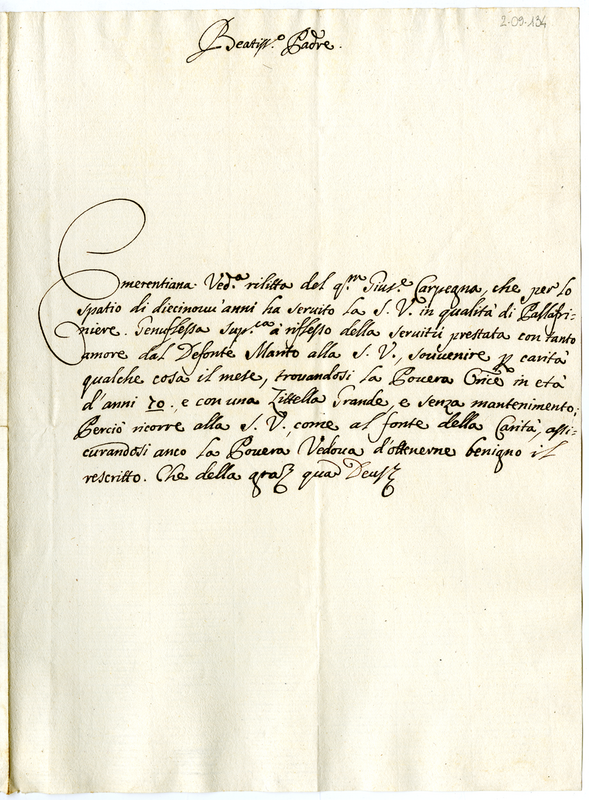 2-09-134
Beatiss.o Padre.
Emerentiana Ved.a relitta del q.m Gius.e Carpegna, che per lo
spatio di diecinoui anni ha seruito la S. V. in qualità di Pallafre:
niere. Genuflessa supp.ca à riflesso della seruitù prestata con tanto
amore dal Defonte Marito alla S. V., souuenire p carità
qualche cosa il mese, trouandosi la Pouera Orice in età
d'anni 70., e con una Zittella Grande, e senza mantenimento;
Perciò ricorre alla S. V., come al fonte della Carità, assi:
curandosi anco la Pouera Vedoua d'ottenerne benigno il
rescritto. Che della graz qua Deus